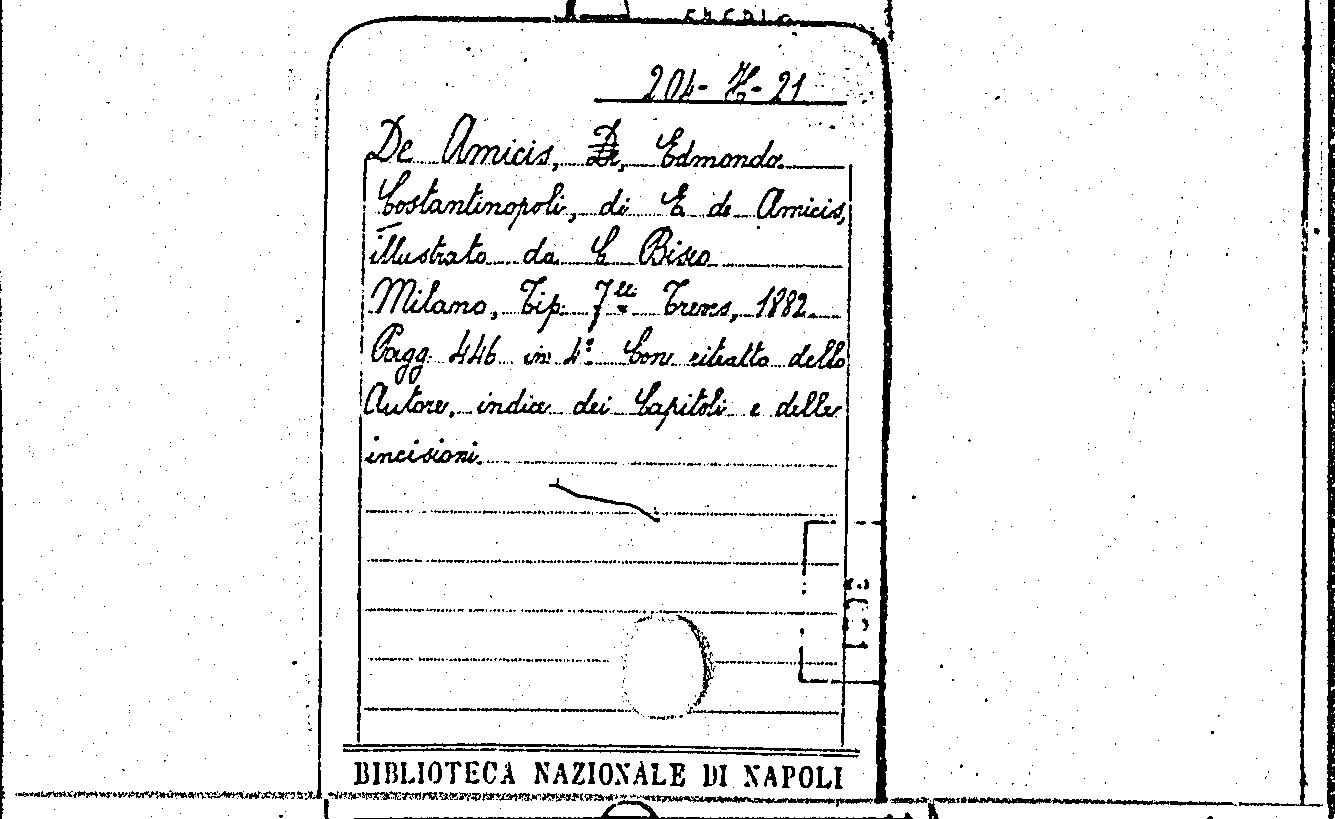 204-H-21
De Amicis, De, Edmondo.
Costantinopoli, di E. de Amicis,
illustrato da C. Biseo
Milano, Tip. F.lli Treves, 1882.
Pagg. 446 in 4º. Con ritratto dello
Autore, indice dei Capitoli e delle
incisioni.
BIBLIOTECA NAZIONALE DI NAPOLI